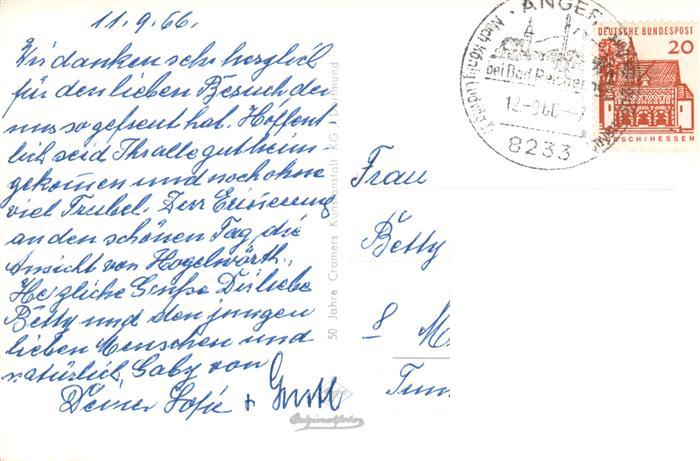 11.9.66.
Wir danken sehr herzlich
für den lieben Besuch der
uns so gefreut hat. Hoffent
lich seid Ihr alle gut heim
gekommen und noch ohne
viel Trubel. Zur Erinnerung
an den schönen Tag die
Ansicht von Högelwörth.
Herzliche Grüße Dir liebe
Betty und den jungen
lieben Menschen und
natürlich Gaby von
Deiner Sofie +
50 Jahre Cramers Kunstanstalt KG, Dortmund
Originalfoto
ANGER
bei Bad Reichen
12.-9.66.-7
8233
DEUTSCHE BUNDESPOST
20
LORSCH/HESSEN
Frau
Betty
8 M